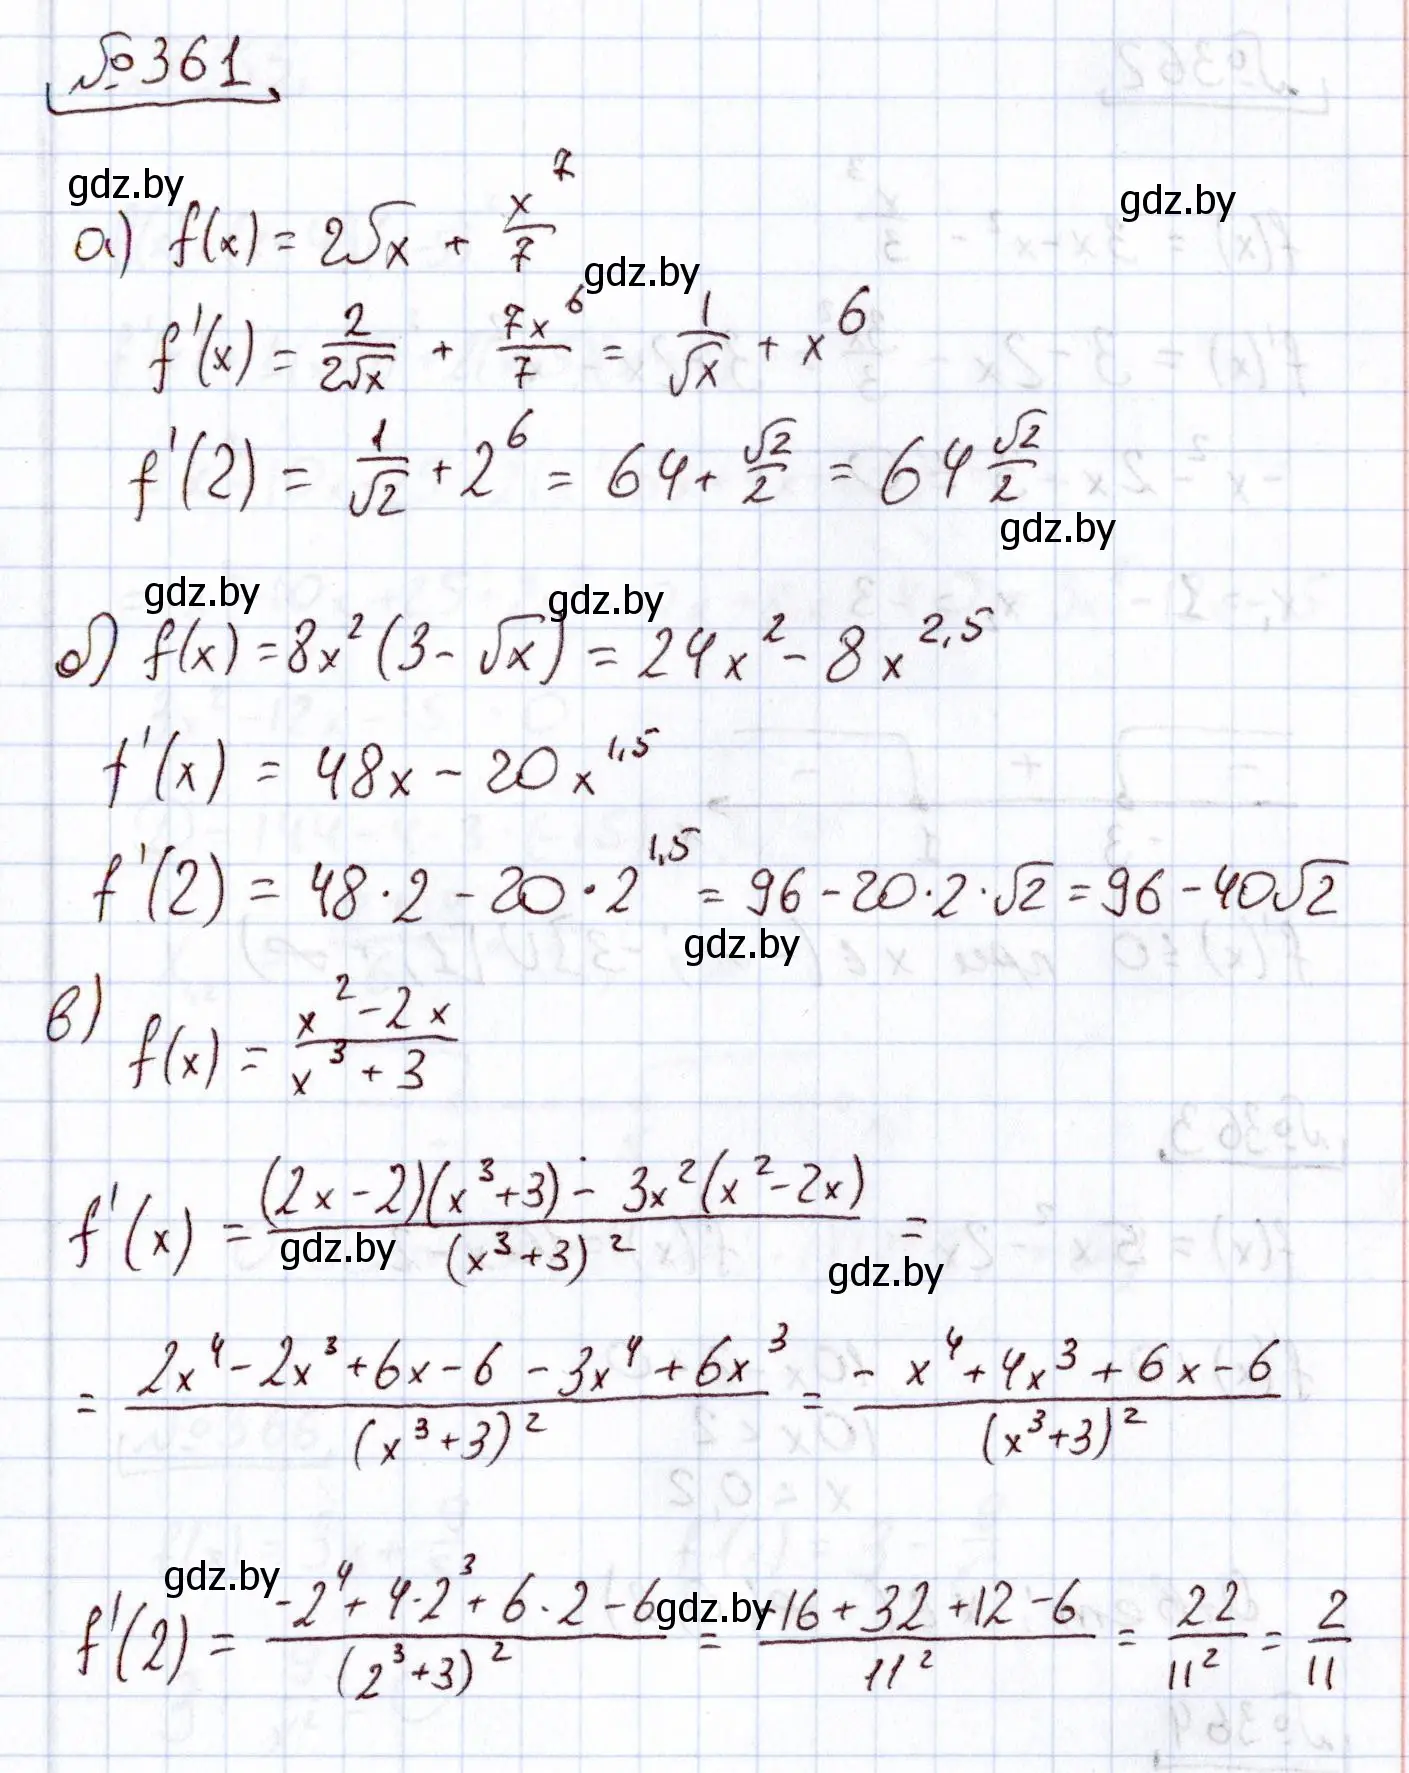 №361
gdz.by
gdz.by
а) f(x) = 2√x + x⁷/7
gdz.by
f'(x) = 2/(2√x) + 7x⁶/7 = 1/√x + x⁶
f'(2) = 1/√2 + 2⁶ = 64 + √2/2 = 64 √2/2
gdz.by
gdz.by
gdz.by
б) f(x) = 8x² (3 - √x) = 24x² - 8x^2,5
f'(x) = 48x - 20x^1,5
f'(2) = 48·2 - 20·2^1,5 = 96 - 20·2·√2 = 96 - 40√2
gdz.by
в) f(x) = (x² - 2x)/(x³ + 3)
f'(x) = ((2x - 2)(x³ + 3) - 3x²(x² - 2x))/(x³ + 3)² =
gdz.by
gdz.by
= (2x⁴ - 2x³ + 6x - 6 - 3x⁴ + 6x³)/(x³ + 3)² = (-x⁴ + 4x³ + 6x - 6)/(x³ + 3)²
gdz.by
gdz.by
f'(2) = (-2⁴ + 4·2³ + 6·2 - 6)/(2³ + 3)² = (-16 + 32 + 12 - 6)/11² = 22/11² = 2/11